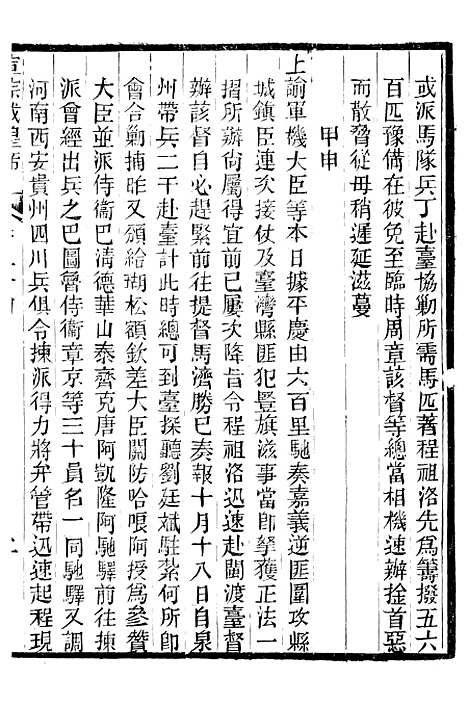 或派馬隊兵丁赴臺協勦所需馬匹著程祖洛先爲籌撥五六
百匹豫備在彼免至臨時周章該督等總當相機速辦捦首惡
而散脅從毋稍遲延滋蔓
甲申
上諭軍機大臣等本日據平慶由六百里馳奏嘉義逆匪圍攻縣
城鎮臣連次接仗及臺灣縣匪犯豎旗滋事當卽拏獲正法一
摺所辦尙屬得宜前已屢次降旨令程祖洛迅速赴閩渡臺督
辦該督自必趕緊前往提督馬濟勝已奏報十月十八日自泉
州帶兵二千赴臺計此時總可到臺探聽劉廷斌駐紮何所卽
會合勦捕昨又頒給瑚松額欽差大臣關防哈哴阿授爲參贊
大臣並派侍衞巴淸德華山泰齊克唐阿凱隆阿馳驛前往揀
派曾經出兵之巴圖魯侍衞章京等三十員名一同馳驛又調
河南西安貴州四川兵俱令揀派得力將弁管帶迅速起程現
宣宗成皇帝